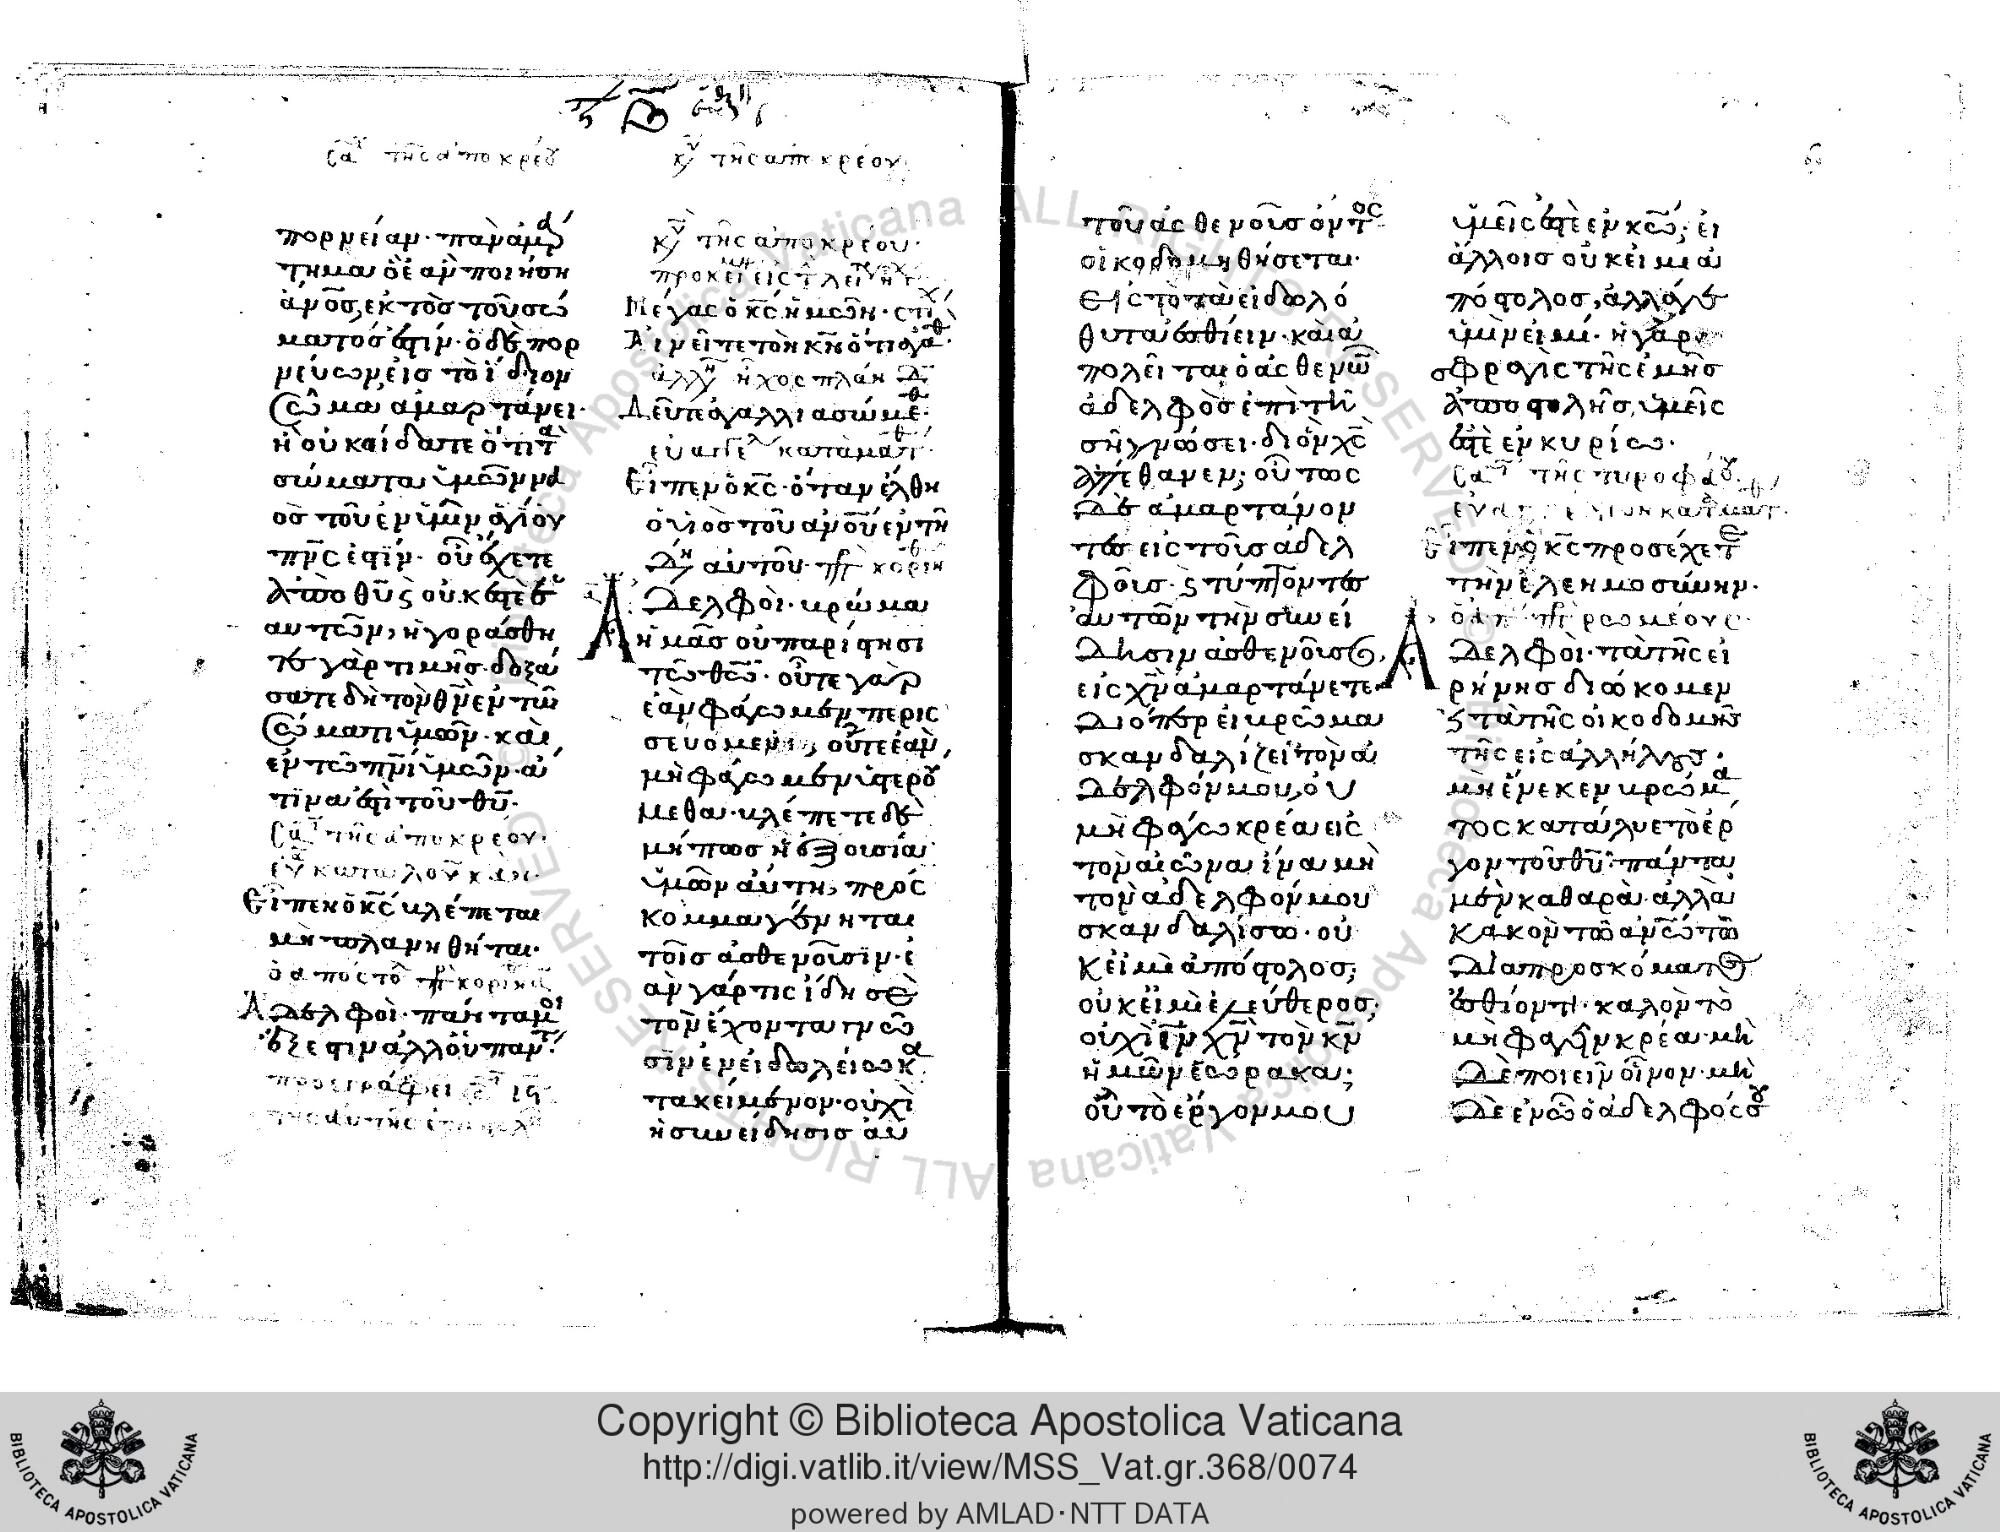 σα τῆς ἀπόκρεου
κυ τῆς ἀπόκρεου
πορνείαν· πᾶν ἁμάρ
τημα ὃ ἐὰν ποιήση
ἀνος, ἐκτὸς τοῦ σώ
ματός ἐστιν· ὁ δὲ πορ
νεύων, εἰς τὸ ἴδιον
σῶμα ἁμαρτάνει·
ἢ οὐκ οἴδατε ὅτι τὰ
σώματα ὑμῶν να
ὸς τοῦ ἐν ὑμῖν ἁγίου
πνς ἐστίν· οὗ ἔχετε
ἀπὸ θυ ϛ οὐκ ἐστὲ ἑ
αυτῶν, ἠγοράσθη
τε γὰρ τιμῆς· δοξά
σατε δὴ τὸν θν ἐν τῶ
σώματι ὑμῶν· καὶ
ἐν τῶ πνι ὑμῶν· ἅ
τινα ἐστὶ τοῦ θυ·
σα τῆς ἀπόκρεου·
εὐα κατὰ λουκᾶν·
Εἶπεν ὁ κς βλέπεται
μὴ πλανηθῆται·
ὁ ἀπόστο πρ κοριν
Ἀδελφοὶ· πάντα μοι
ἔξεστιν ἀλλ' οὐ παντ·
κυ τῆς ἀπόκρεου·
Μέγας ὁ κς ἡμῶν· στι
Αἰνεῖτε τὸν κν ὅτι ἀγαθ·
ἀλλη ἦχος πλάη δ
Δεῦτε ἀγαλλιασώμεθ·
εὐαγγε κατὰ ματθ·
Εἶπεν ὁ κς· ὅταν ἔλθη
ὁ υἱὸς τοῦ ἀνου ἐν τῆ
δη αὐτοῦ· πρ κοριν
Ἀδελφοὶ· βρῶμα
ἡμᾶς οὐ παρίστησι
τῶ θῶ· οὔτε γὰρ
ἐὰν φάγωμεν περισ
σεύομεν, οὔτε ἐὰν
μὴ φάγωμεν ὑστερού
μεθα· βλέπετε δὲ
μήπως ἡ ἐξουσία
ὑμῶν αὕτη, πρόσ
κομμα γένηται
τοῖς ἀσθενοῦσιν· ἐ
ὰν γάρ τις ἴδη σὲ
τὸν ἔχοντα γνῶ
σιν ἐν εἰδωλείω κα
τακείμενον· οὐχὶ
ἡ συνείδησις αὐ
τοῦ ἀσθενοῦς ὄντος
οἰκοδομηθήσεται·
εἰς τὸ τὰ εἰδωλό
θυτα ἐσθίειν· καὶ ἀ
πολεῖται ὁ ἀσθενῶν
ἀδελφὸς ἐπὶ τῆ
σῆ γνώσει· δι' ὃν χς
ἀπέθανεν; οὕτως
δὲ ἁμαρτάνον
τες εἰς τοὺς ἀδελ
φοὺς· ϛ τύπτοντες
αὐτῶν τὴν συνεί
δησιν ἀσθενοῦσαν,
εἰς χν ἁμαρτάνετε·
διόπερ εἰ βρῶμα
σκανδαλίζει τὸν ἀ
δελφόν μου, οὐ
μὴ φάγω κρέα εἰς
τὸν αἰῶνα ἵνα μὴ
τὸν ἀδελφόν μου
σκανδαλίσω· οὐ
κ εἰμὶ ἀπόστολος;
οὐκ εἰμὶ ἐλεύθερος;
οὐχὶ ιν χν τὸν κν
ἡμῶν ἑώρακα;
οὐ τὸ ἔργον μου
ὑμεῖς ἐστὲ ἐν κῶ; εἰ
ἄλλοις οὐκ εἰμὶ ἀ
πόστολος, ἀλλάγε
ὑμῖν εἰμί· ἡ γὰρ
σφραγὶς τῆς ἐμῆς
ἀποστολῆς, ὑμεῖς
ἐστὲ ἐν κυρίω·
σα τῆς τυροφάγου
εὐαγγέλιον κατ ματθ·
Εἶπεν ὁ κς προσέχετε
τὴν ἐλεημοσύνην·
ὁ ἀπ πρ ρωμέους·
Ἀδελφοὶ· τὰ τῆς εἰ
ρήνης διώκομεν
ϛ τὰ τῆς οἰκοδομῆς
τῆς εἰς ἀλλήλους·
μὴ ἕνεκεν βρώμα
τος κατάλυε τὸ ἔρ
γον τοῦ θυ· πάντα
μὲν καθαρὰ· ἀλλὰ
κακὸν τῶ ἀνῶ τῶ
διὰ προσκόματος
ἐσθίοντι· καλὸν τὸ
μὴ φαγεῖν κρέα· μὴ
δὲ πιεῖν οἶνον· μὴ
δὲ ἐν ὧ ὁ ἀδελφός σου
Copyright © Biblioteca Apostolica Vaticana
http://digi.vatlib.it/view/MSS_Vat.gr.368/0074
powered by AMLAD·NTT DATA
BIBLIOTECA APOSTOLICA VATICANA
BIBLIOTECA APOSTOLICA VATICANA